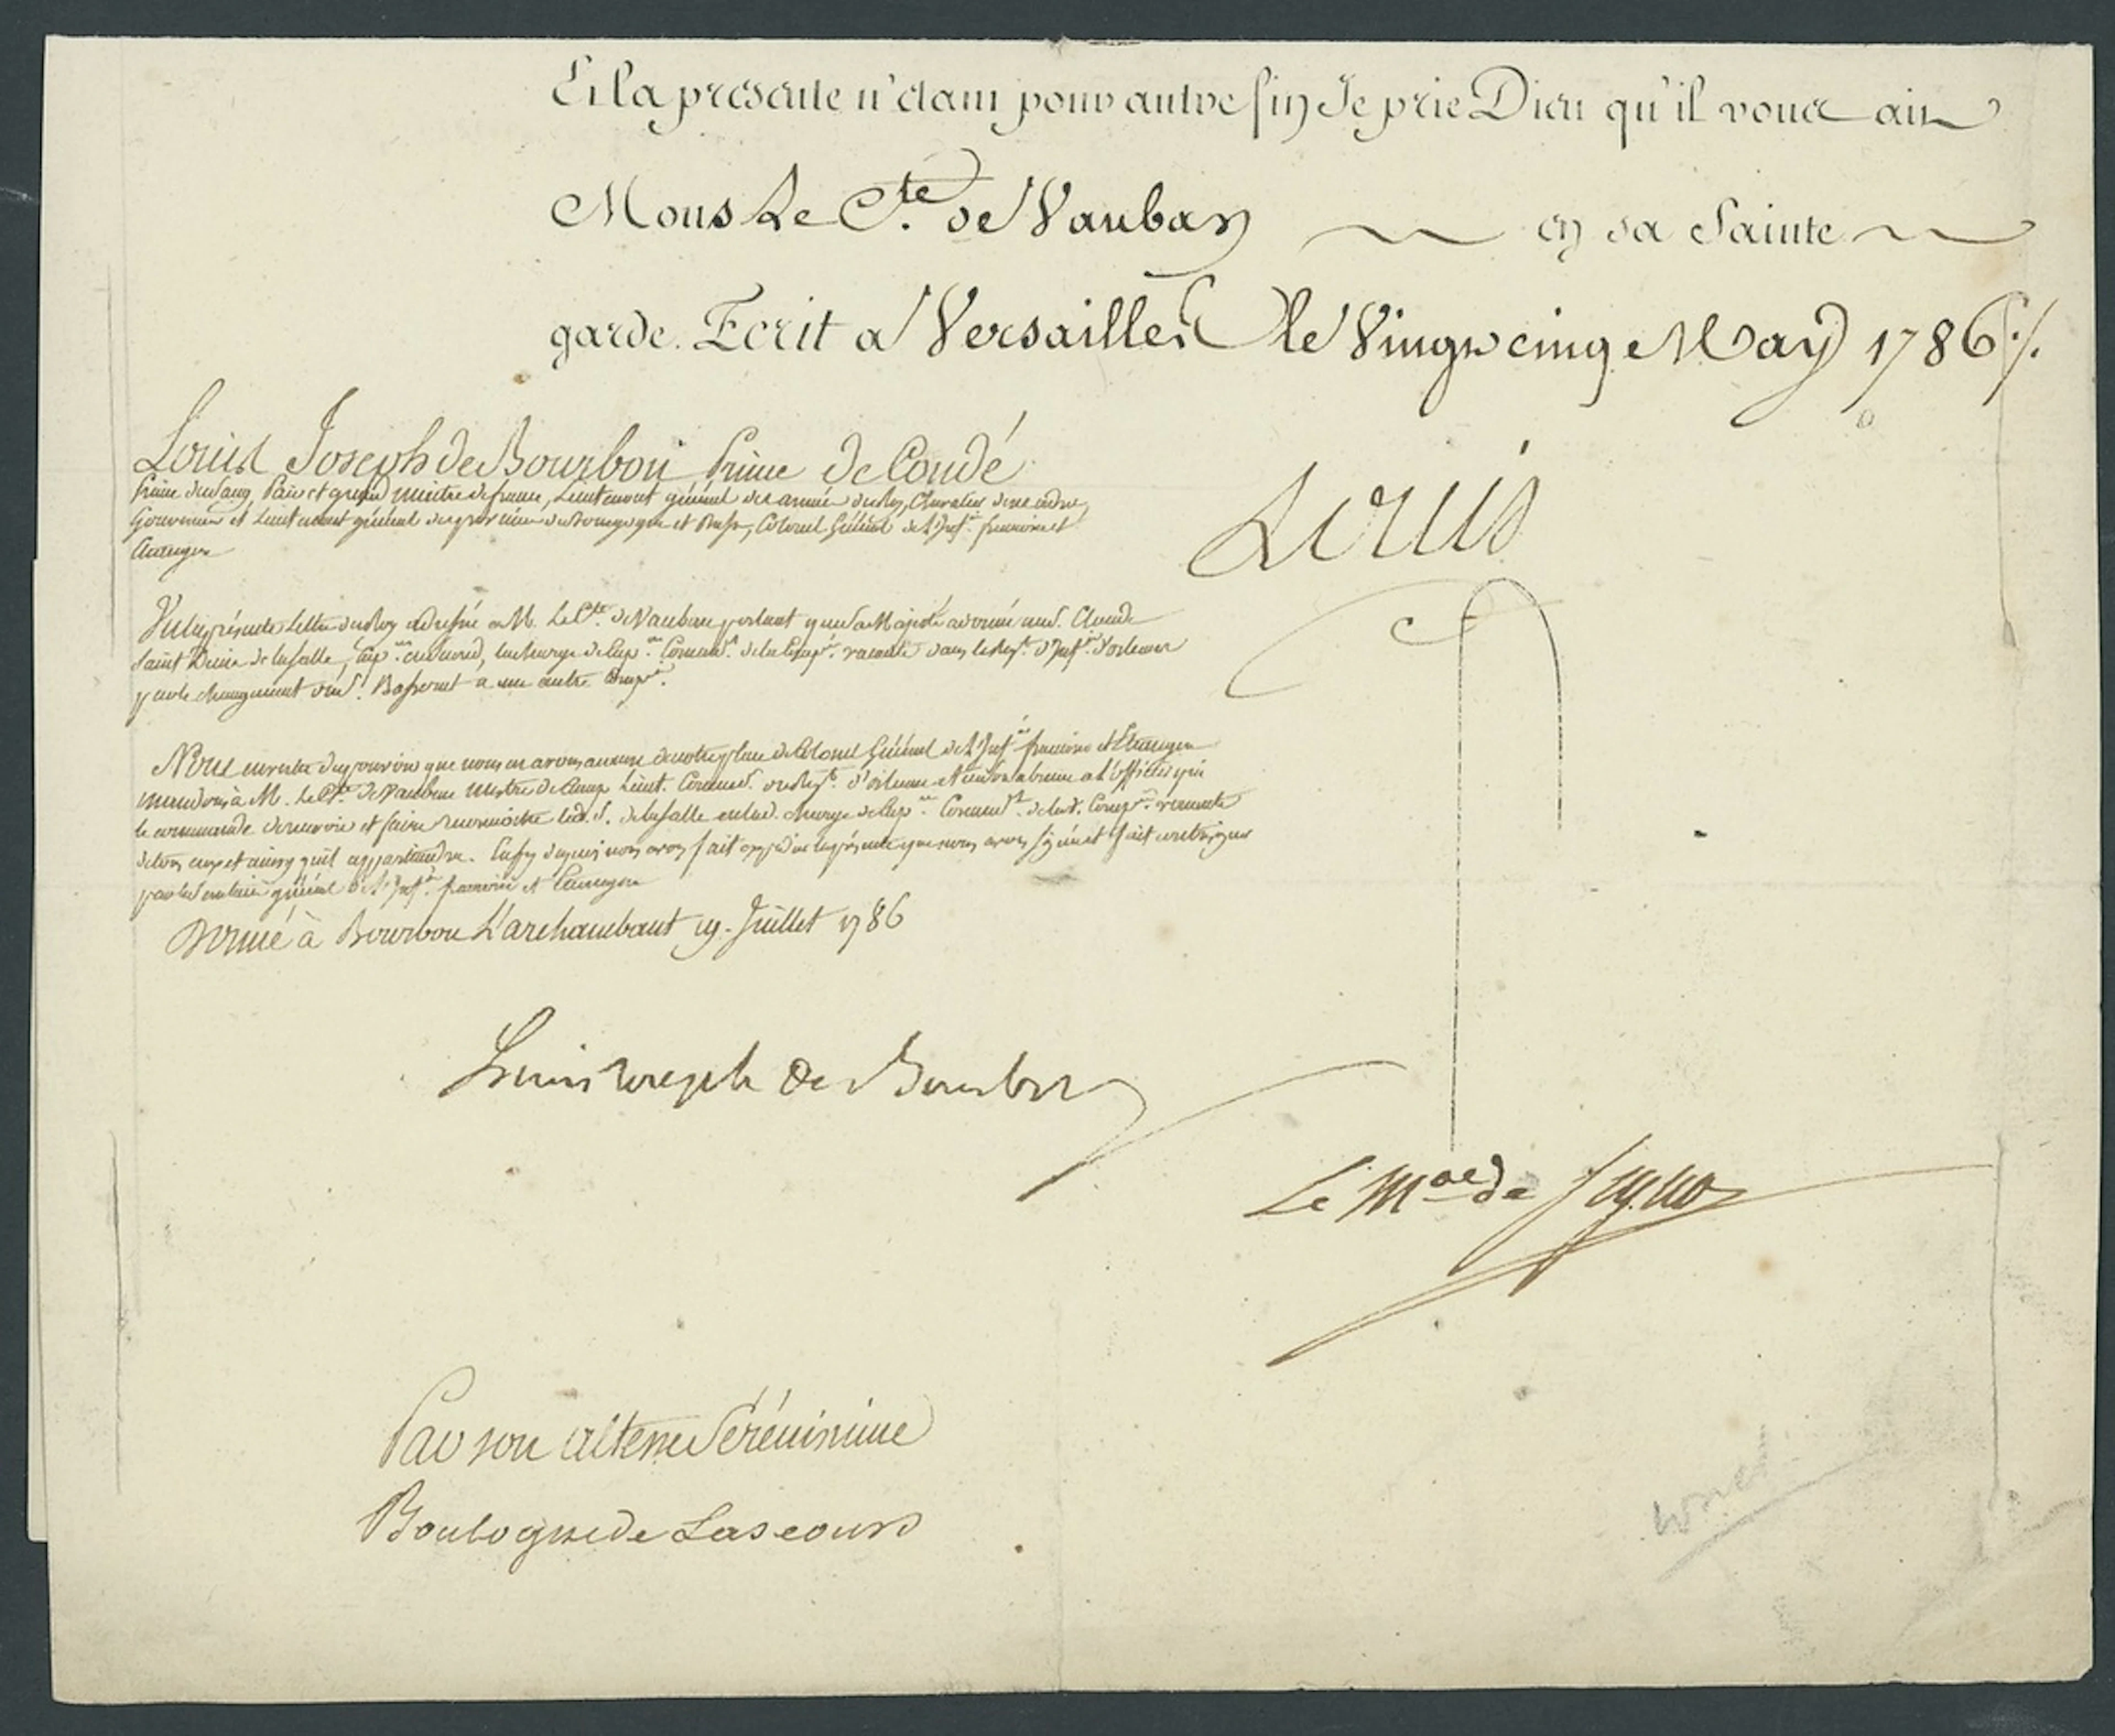 Et la presente n'etant pour autre fin Je prie Dieu qu'il vous ait
Mons Le C.te de Vauban en sa Sainte
garde. Ecrit a Versailles le Vingt cinq May 1786 ./.
Louis Joseph de Bourbon Prince de Condé
Prince du Sang, Pair et grand Maitre de france, Lieutenant général des armées du Roy, Chevalier de ses ordres
Gouverneur et Lieutenant général des provinces de Bourgogne et Bresse, Colonel Général de l'Inf.ie francoise et
Etrangere
Vu la présente Lettre du Roy adressée a M. Le C.te de Vauban portant que Sa Majesté a donné au S. Claude
Saint Denis de la salle, Cap.ne en second, la charge de Cap.ne Command.t de la Comp.ie vacante dans le Reg.t d'Inf.ie d'orleans
par le changement du S. Bassernet a une autre Comp.ie
Nous en vertu du pouvoir que nous en avons a cause de notre place de Colonel Général de l'Inf.ie francoise et Etrangere
mandons à M. Le C.te de Vauban Mestre de Camp Lieut. Command. du Reg.t d'orleans et en son absence a l'officier qui
le commande de recevoir et faire reconnoitre led. S. de la salle en lad. charge de Cap.ne Command.t de lad. Comp.ie vacante
de tous ceux et ainsy qu'il appartiendra. En foy de quoi nous avons fait expedier la présente que nous avons signée et fait contresigner
par le Secretaire général de l'Inf.ie francoise et Etrangere
Donné à Bourbon L'archambaut 19. Juillet 1786
Louis
Louis Joseph de Bourbon
Le M.al de Segur
Par son altesse Sérénissime
Boulogne de Lascours